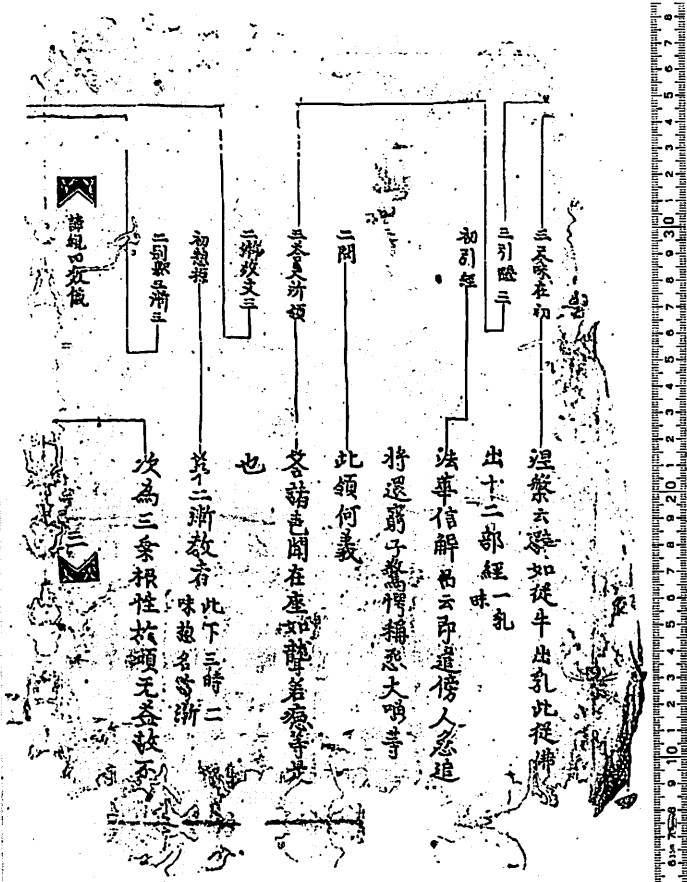 三五味在初
涅槃云譬如從牛出乳此從佛
三引證三
出十二部經一乳
味
初引經
法華信解品云即遣傍人急追
將還窮子驚愕稱怨大喚等
二問
此領何義
三答所領
答諸聲聞在座如聾若瘂等是
二漸教文三
也
初總標
第二漸教者 此下三時三
味總名為漸
二別釋三漸三
次為三乘根性於頓无益故不
諦觀四教儀
三